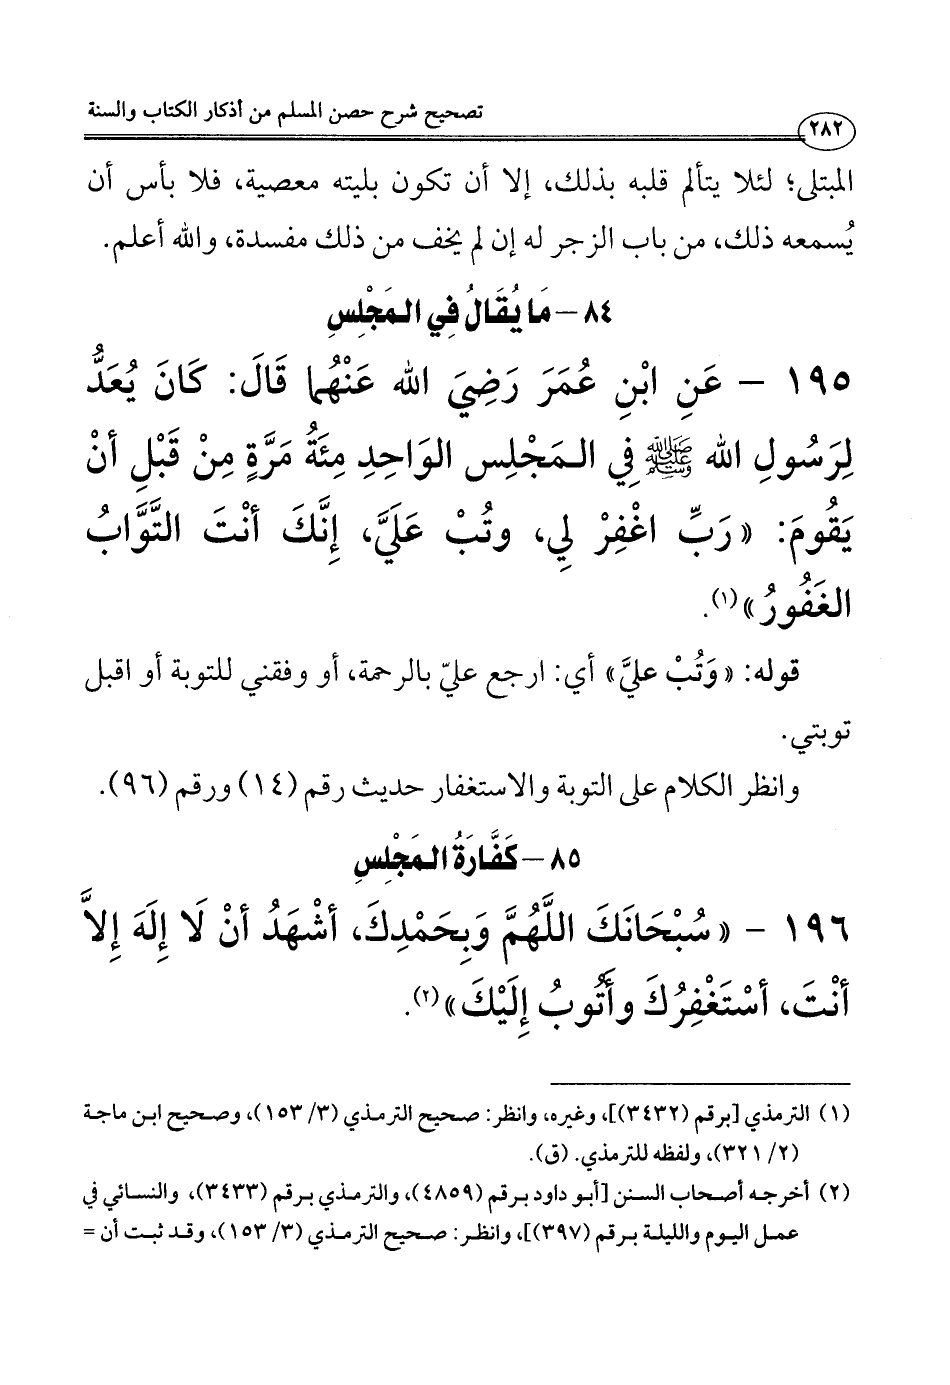 تصحيح شرح حصن المسلم من أذكار الكتاب والسنة
٢٨٢
المبتلى؛ لئلا يتألم قلبه بذلك، إلا أن تكون بليته معصية، فلا بأس أن
يُسمعه ذلك، من باب الزجر له إن لم يخف من ذلك مفسدة، والله أعلم.
٨٤ – مَا يُقَالُ فِي المَجْلِسِ
١٩٥ – عَنِ ابْنِ عُمَرَ رَضِيَ الله عَنْهُما قَالَ: كَانَ يُعَدُّ
لِرَسُولِ الله ﷺ فِي المَجْلِسِ الوَاحِدِ مِئَةُ مَرَّةٍ مِنْ قَبْلِ أنْ
يَقُومَ: «رَبِّ اغْفِرْ لِي، وتُبْ عَلَيَّ، إنَّكَ أنْتَ التَّوَّابُ
الغَفُورُ»(١).
قوله: «وَتُبْ عليَّ» أي: ارجع عليّ بالرحمة، أو وفقني للتوبة أو اقبل
توبتي.
وانظر الكلام على التوبة والاستغفار حديث رقم (١٤) ورقم (٩٦).
٨٥ – كَفَّارَةُ المَجْلِسِ
١٩٦ – «سُبْحَانَكَ اللَّهُمَّ وَبِحَمْدِكَ، أشْهَدُ أنْ لَا إِلَهَ إِلاَّ
أنْتَ، أسْتَغْفِرُكَ وأَتُوبُ إلَيْكَ»(٢).
(١) الترمذي [برقم (٣٤٣٢)]، وغيره، وانظر: صحيح الترمذي (٣/ ١٥٣)، وصحيح ابن ماجة
(٢/ ٣٢١)، ولفظه للترمذي. (ق).
(٢) أخرجه أصحاب السنن [أبو داود برقم (٤٨٥٩)، والترمذي برقم (٣٤٣٣)، والنسائي في
عمل اليوم والليلة برقم (٣٩٧)]، وانظر: صحيح الترمذي (٣/ ١٥٣)، وقد ثبت أن =